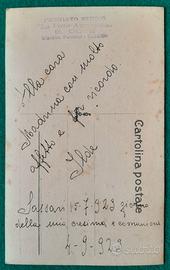 Alla cara
Madrina con molto
affetto e per ricordo
Ilde
Cartolina postale
Sassari 15-7-923 giorno
della mia cresima e comunione
4-9-929